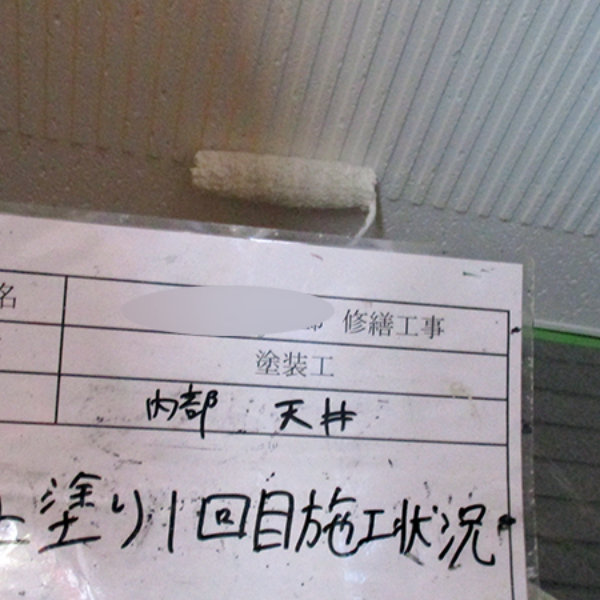 名 修繕工事
塗装工
内部 天井
上塗り1回目施工状況